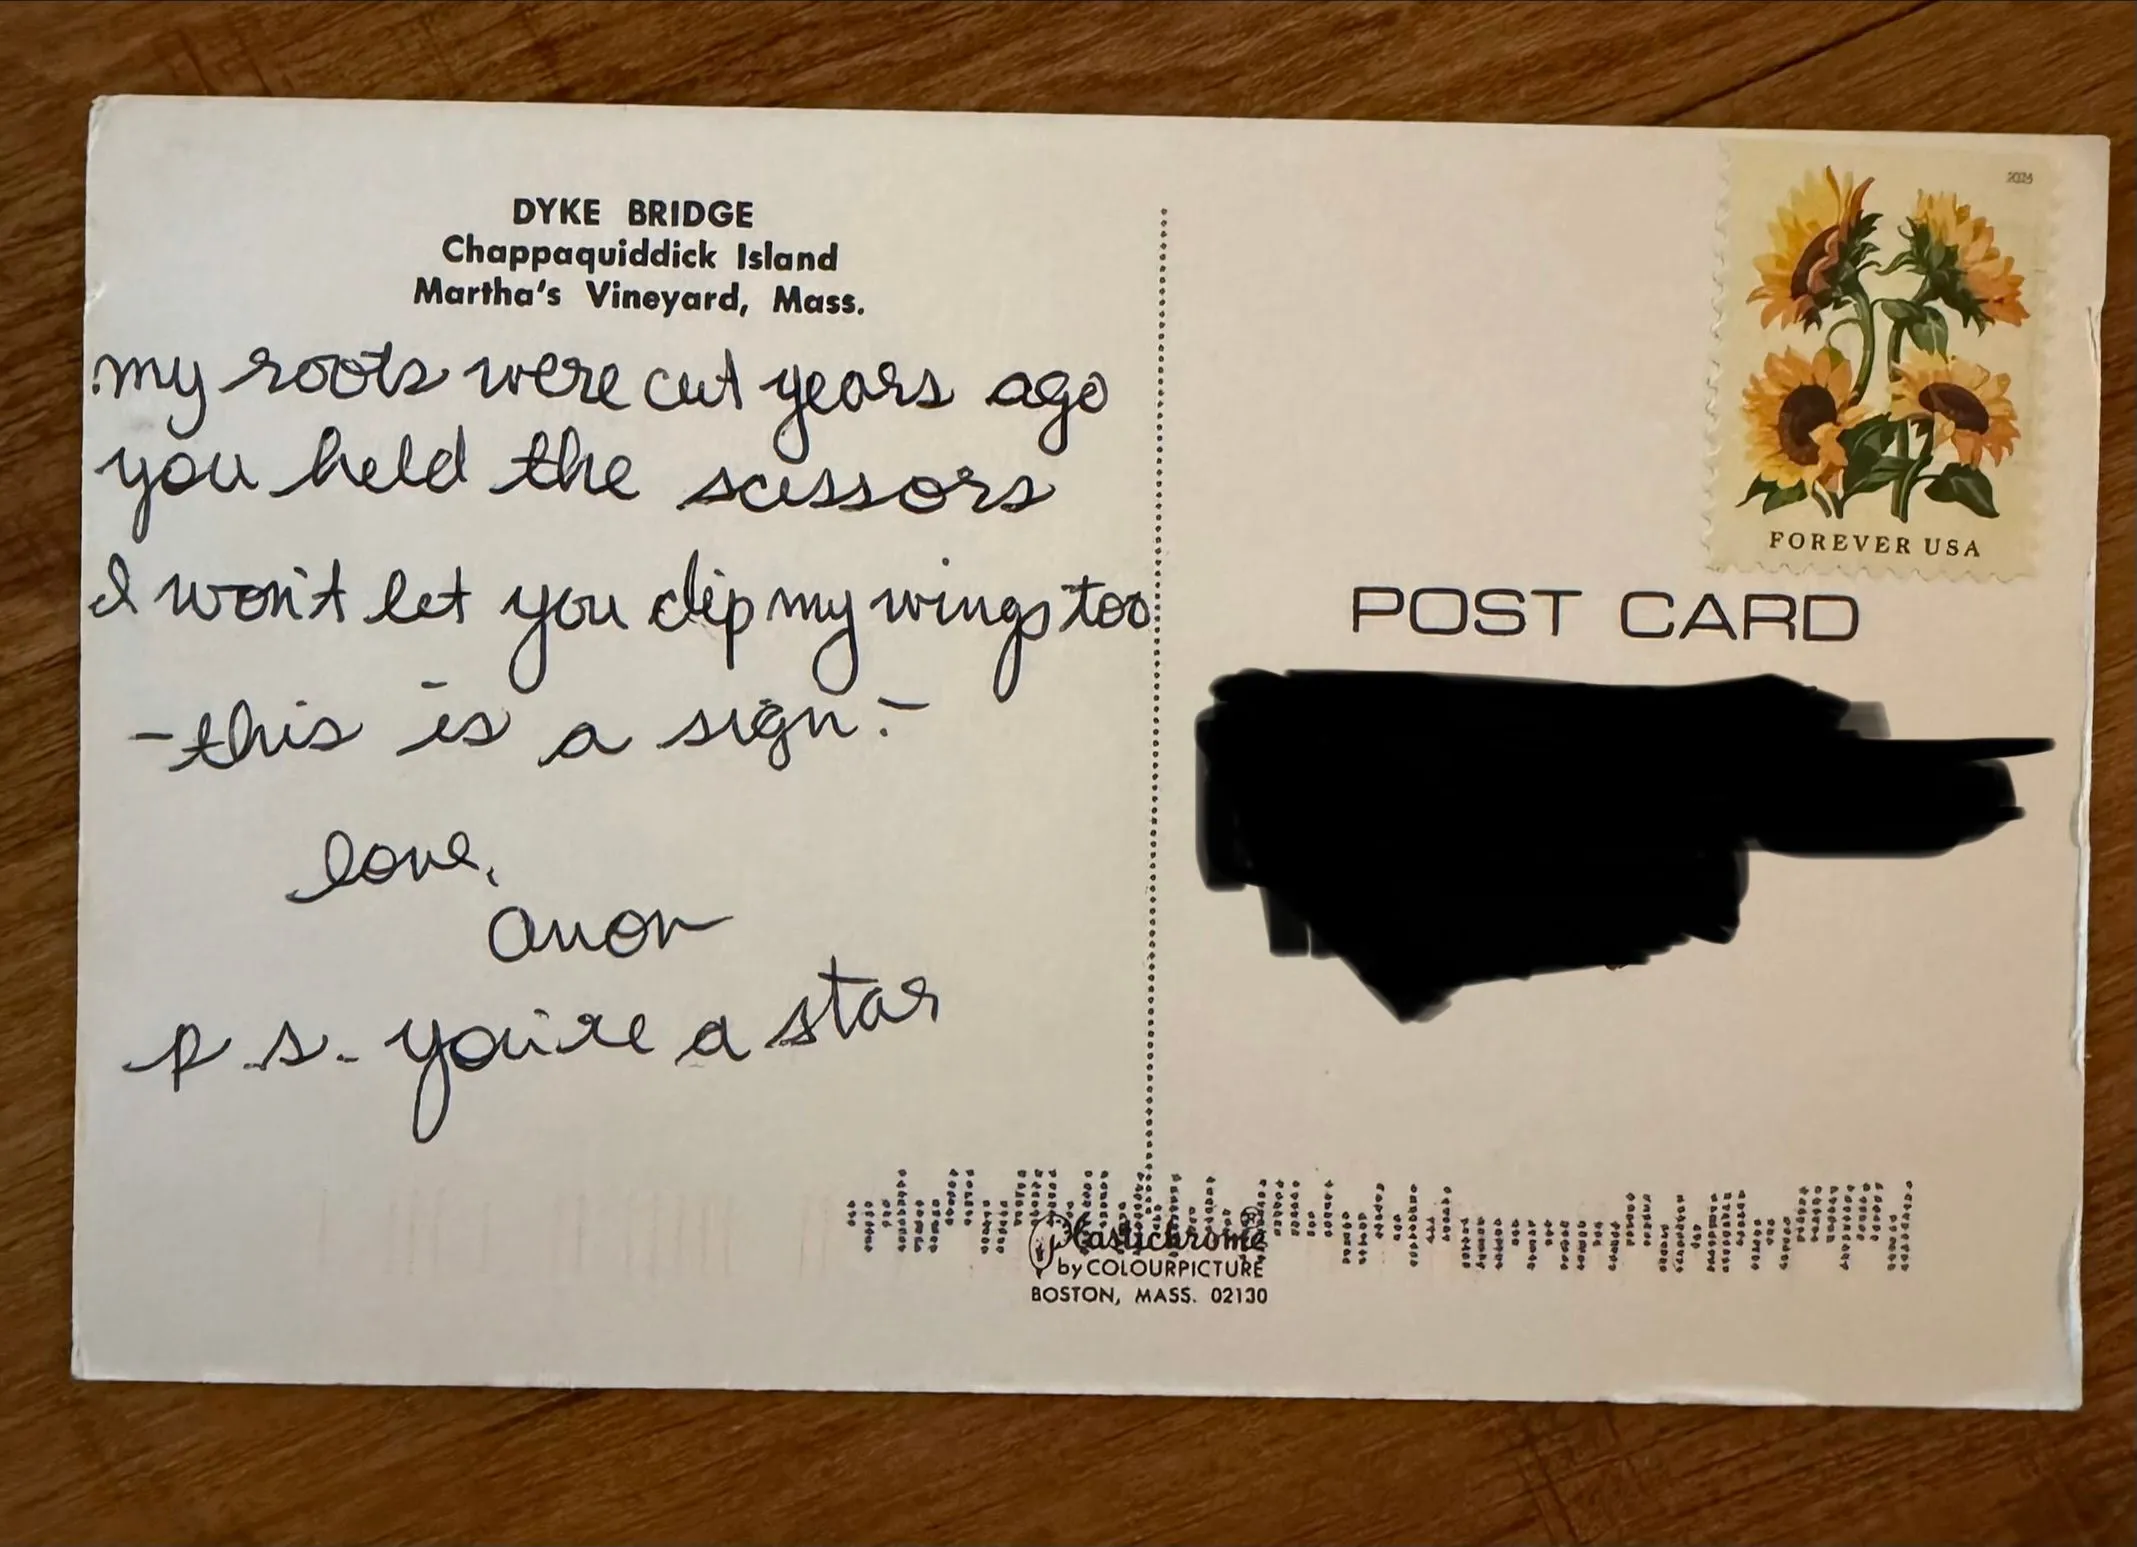 DYKE BRIDGE
Chappaquiddick Island
Martha's Vineyard, Mass.
my roots were cut years ago
you held the scissors
I won't let you clip my wings too
-this is a sign.-
love,
anon
p.s. you're a star
FOREVER USA
POST CARD
Plastichrome®
by COLOURPICTURE
BOSTON, MASS. 02130